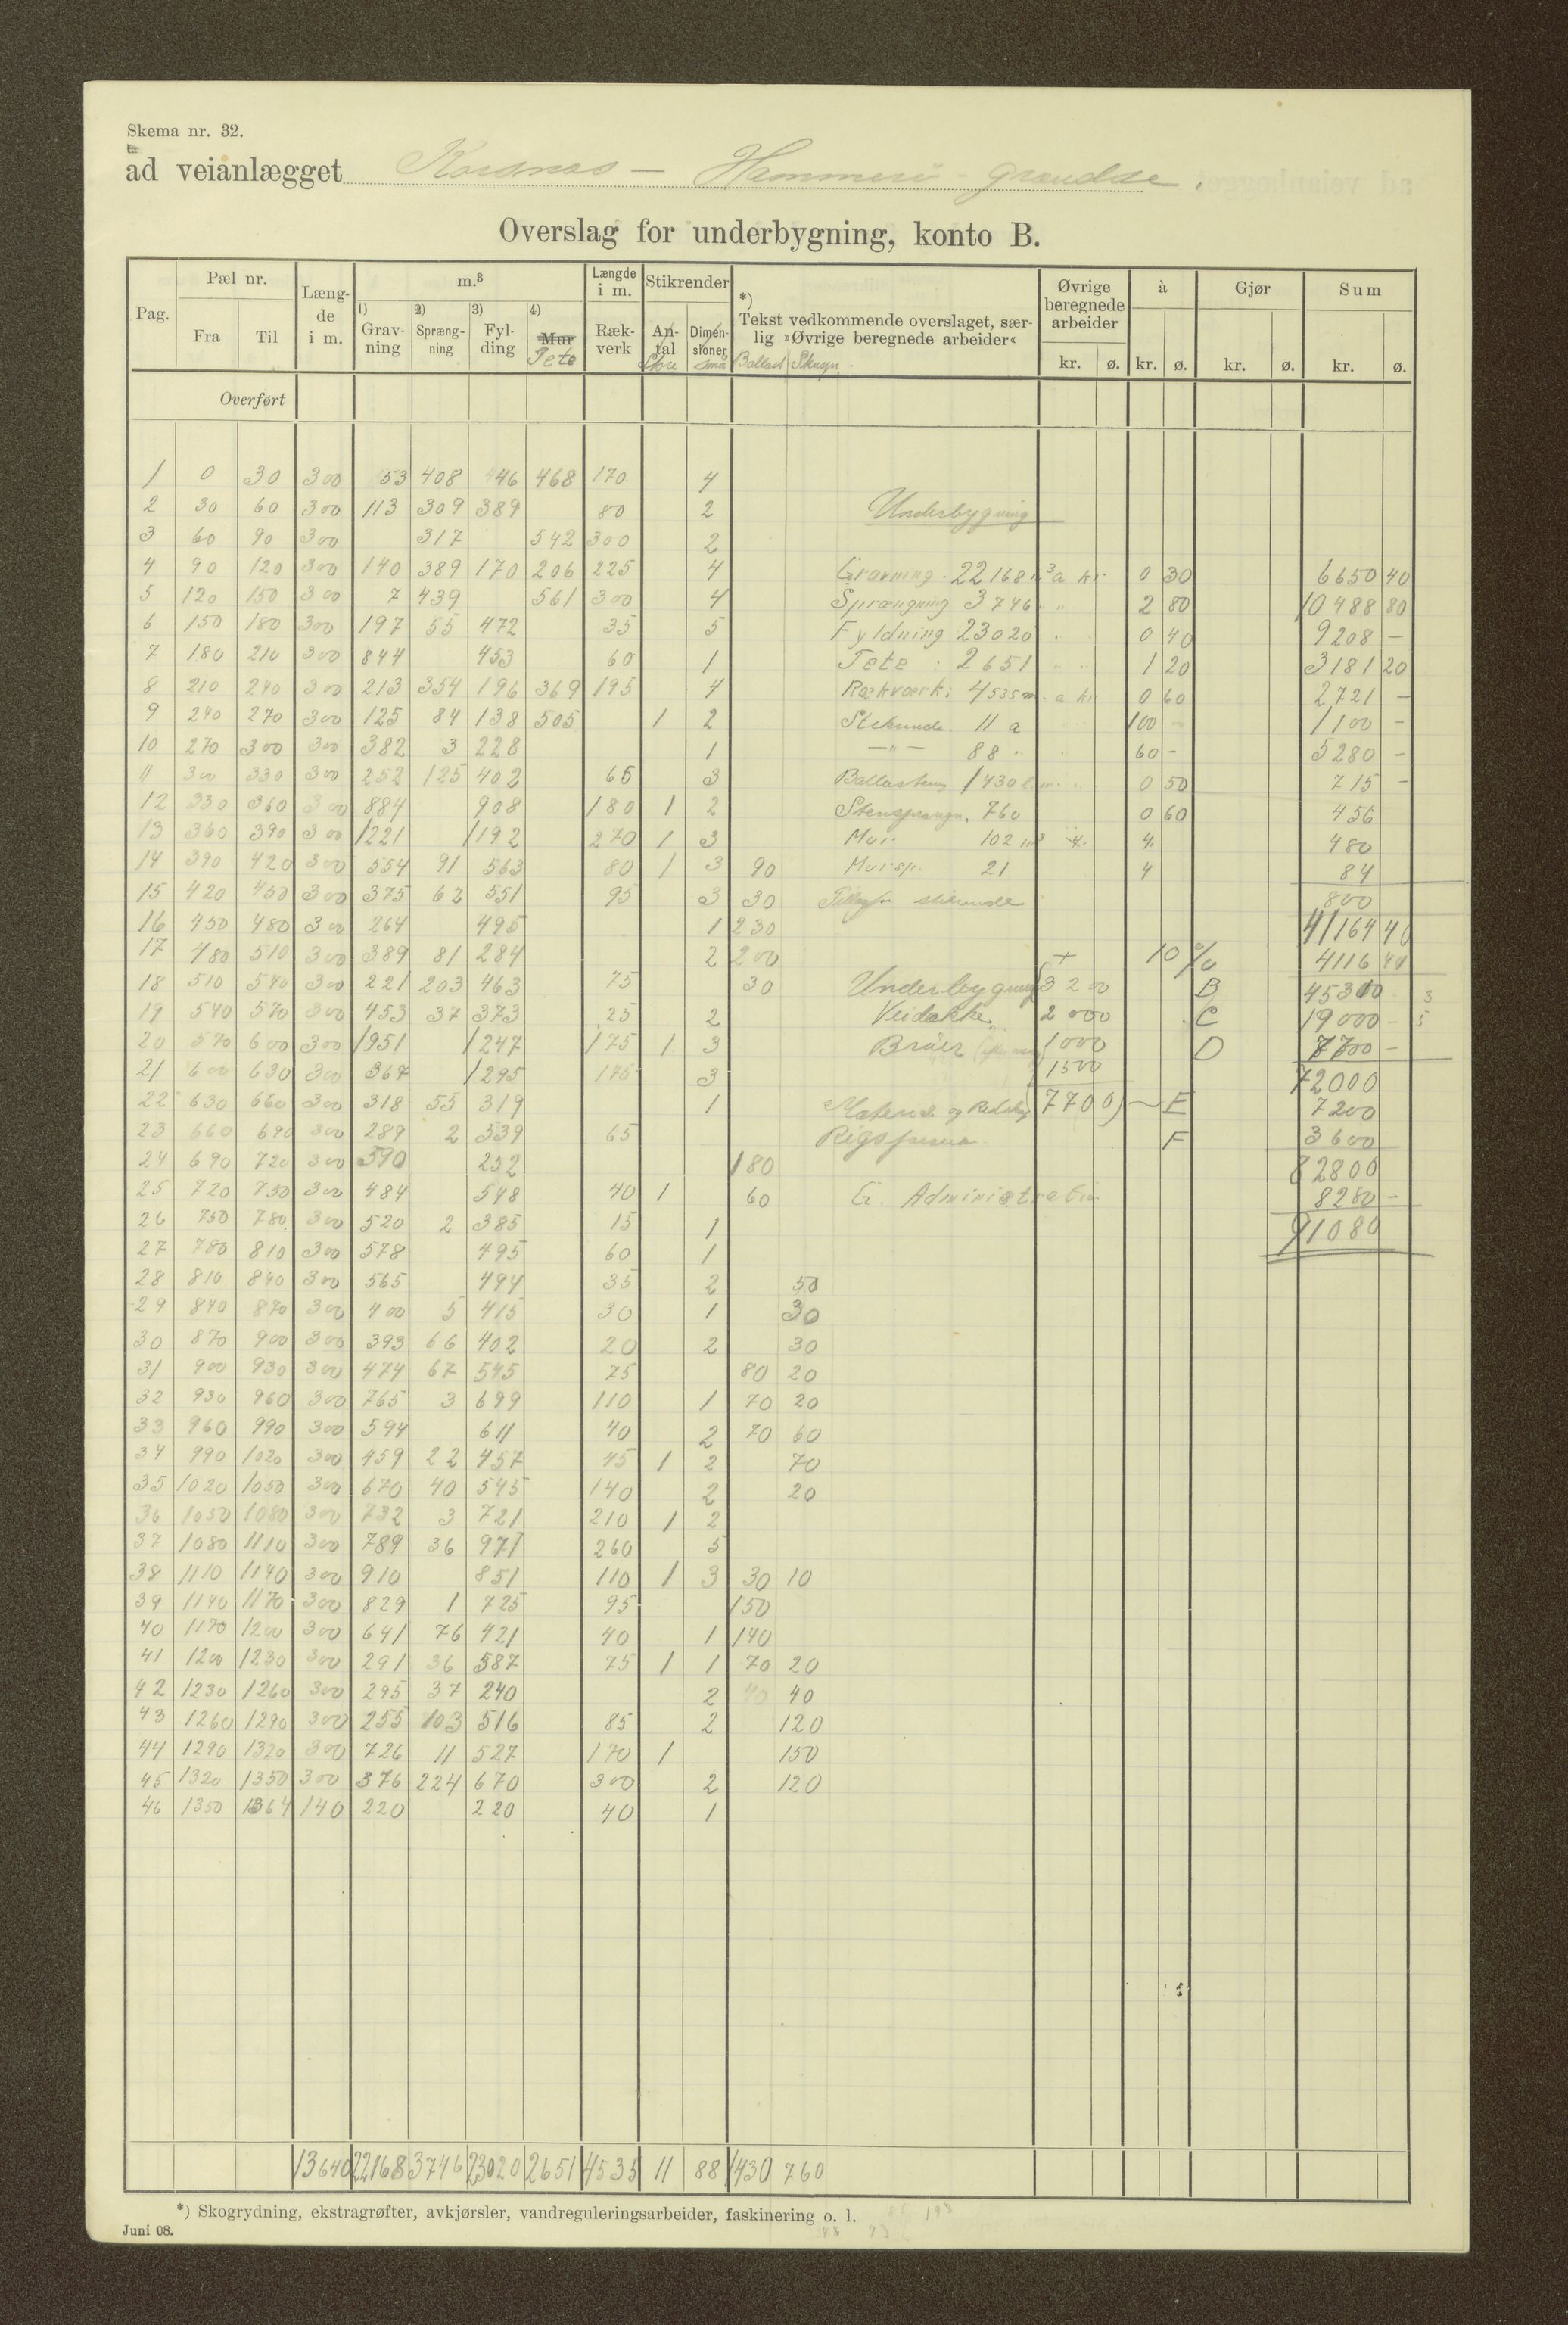 Skema nr. 32.
ad veianlægget Korsnæs — Hammerö - Grændse.
Overslag for underbygning, konto B.
Pag. Pæl nr. Læng-de i m. m.³ Længde i m. Stikrender *) Tekst vedkommende overslaget, sær-lig »Øvrige beregnede arbeider« Øvrige beregnede arbeider à Gjør Sum
Fra Til 1) Grav-ning 2) Spræng-ning 3) Fyl-ding 4) Mur Tete Ræk-verk An-tal Store Dimen-sioner små Ballast kr. ø. kr. ø. kr. ø. kr. ø.
Overført
1 0 30 300 53 408 446 468 170 4
2 30 60 300 113 309 389 80 2 Underbygning
3 60 90 300 317 542 300 2
4 90 120 300 140 389 170 206 225 4 Gravning 22168 m³ a kr. 0 30 6650 40
5 120 150 300 7 439 561 300 4 Sprængning 3746 " 2 80 10488 80
6 150 180 300 197 55 472 35 5 Fyldning 23020 " 0 40 9208 —
7 180 210 300 844 453 60 1 Tete : 2651 " " 1 20 3181 20
8 210 240 300 213 354 196 369 195 4 Rækværk: 4535 m. a kr 0 60 2721 —
9 240 270 300 125 84 138 505 1 2 11 a 100 — 1100 —
10 270 300 300 382 3 228 1 — " — 88 " 60 - 5280 —
11 300 330 300 252 125 402 65 3 1430 0 50 715 —
12 330 360 300 884 908 180 1 2 760 0 60 456
13 360 390 300 1221 1192 270 1 3 Mur. 102 m³ 4. 480
14 390 420 300 554 91 563 80 1 3 90 Mursp. 21 4 84
15 420 450 300 375 62 551 95 3 30 800
16 450 480 300 264 495 1 230 41164 40
17 480 510 300 389 81 284 2 200 + 10 % 4116 40
18 510 540 300 221 203 463 75 30 Underbygning 3200 B 45300 3
19 540 570 300 453 37 373 25 2 Veidække 2000 C 19000 - 5
20 570 600 300 1951 1247 175 1 3 Broer 1000 D 7700 —
21 600 630 300 367 1295 175 3 1500 72000
22 630 660 300 318 55 319 1 og Redskap 7700) — E 7200
23 660 690 300 289 2 539 65 F 3600
24 690 720 300 590 232 180 82800
25 720 750 300 484 548 40 1 60 G. Administration 8280 —
26 750 780 300 520 2 385 15 1 91080
27 780 810 300 578 495 60 1
28 810 840 300 565 494 35 2 50
29 840 870 300 400 5 415 30 1 30
30 870 900 300 393 66 402 20 2 30
31 900 930 300 474 67 545 75 80 20
32 930 960 300 765 3 699 110 1 70 20
33 960 990 300 594 611 40 2 70 60
34 990 1020 300 459 22 457 45 1 2 70
35 1020 1050 300 670 40 545 140 2 20
36 1050 1080 300 732 3 721 210 1 2
37 1080 1110 300 789 36 971 260 5
38 1110 1140 300 910 851 110 1 3 30 10
39 1140 1170 300 829 1 725 95 150
40 1170 1200 300 641 76 421 40 1 140
41 1200 1230 300 291 36 587 75 1 1 70 20
42 1230 1260 300 295 37 240 2 40 40
43 1260 1290 300 255 103 516 85 2 120
44 1290 1320 300 726 11 527 170 1 150
45 1320 1350 300 376 224 670 300 2 120
46 1350 1364 140 220 220 40 1
13640 22168 3746 23020 2651 4535 11 88 1430 760
*) Skogrydning, ekstragrøfter, avkjørsler, vandreguleringsarbeider, faskinering o. l.
Juni 08.